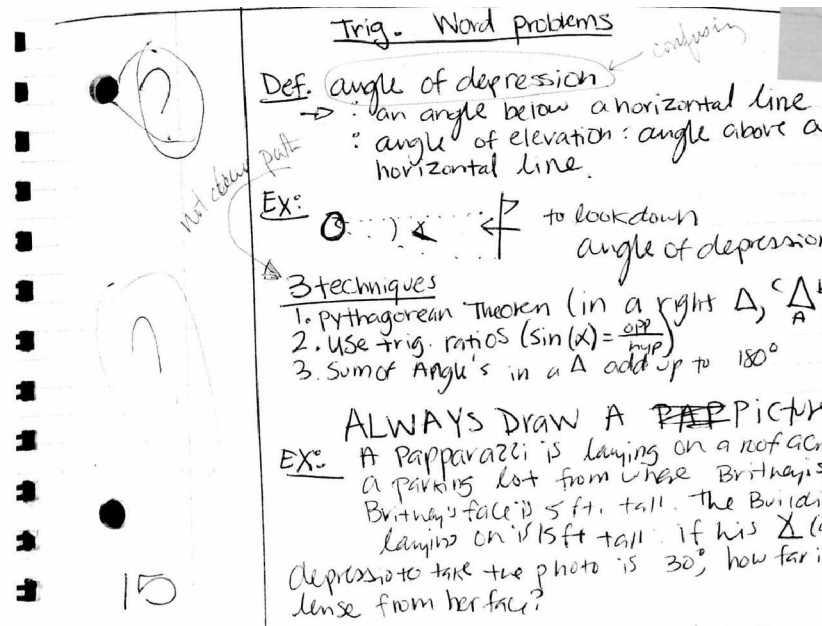 Trig. Word problems
confusing
Def. angle of depression
: an angle below a horizontal line
: angle of elevation: angle above a
horizontal line.
not clear path
Ex:
to look down
angle of depression
3 techniques
1. Pythagorean Theorem (in a right Δ, C Δ
A
2. Use trig. ratios (sin(x) = opp/hyp)
3. Sum of Angle's in a Δ add up to 180°
ALWAYS Draw A Picture
EX: A Papparazzi is laying on a roof acr
a parking lot from where Britney is
Britney's face is 5 ft. tall. The Buildi
laying on is 15 ft tall. if his
depressio to take the photo is 30°, how far i
lense from her face?
15